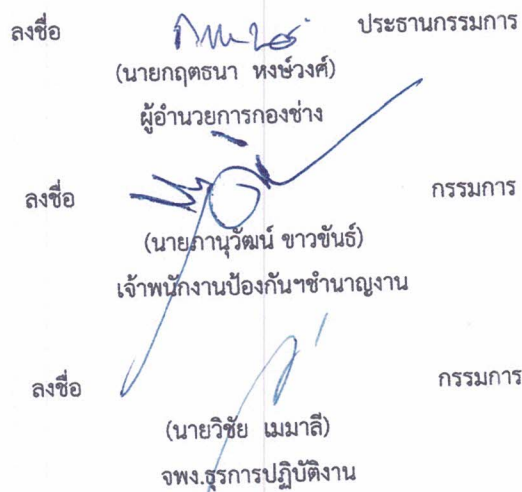 ลงชื่อ ประธานกรรมการ
(นายกฤตธนา หงษ์วงศ์)
ผู้อำนวยการกองช่าง
ลงชื่อ กรรมการ
(นายภานุวัฒน์ ขาวขันธ์)
เจ้าพนักงานป้องกันฯชำนาญงาน
ลงชื่อ กรรมการ
(นายวิชัย เมมาลี)
จพง.ธุรการปฏิบัติงาน